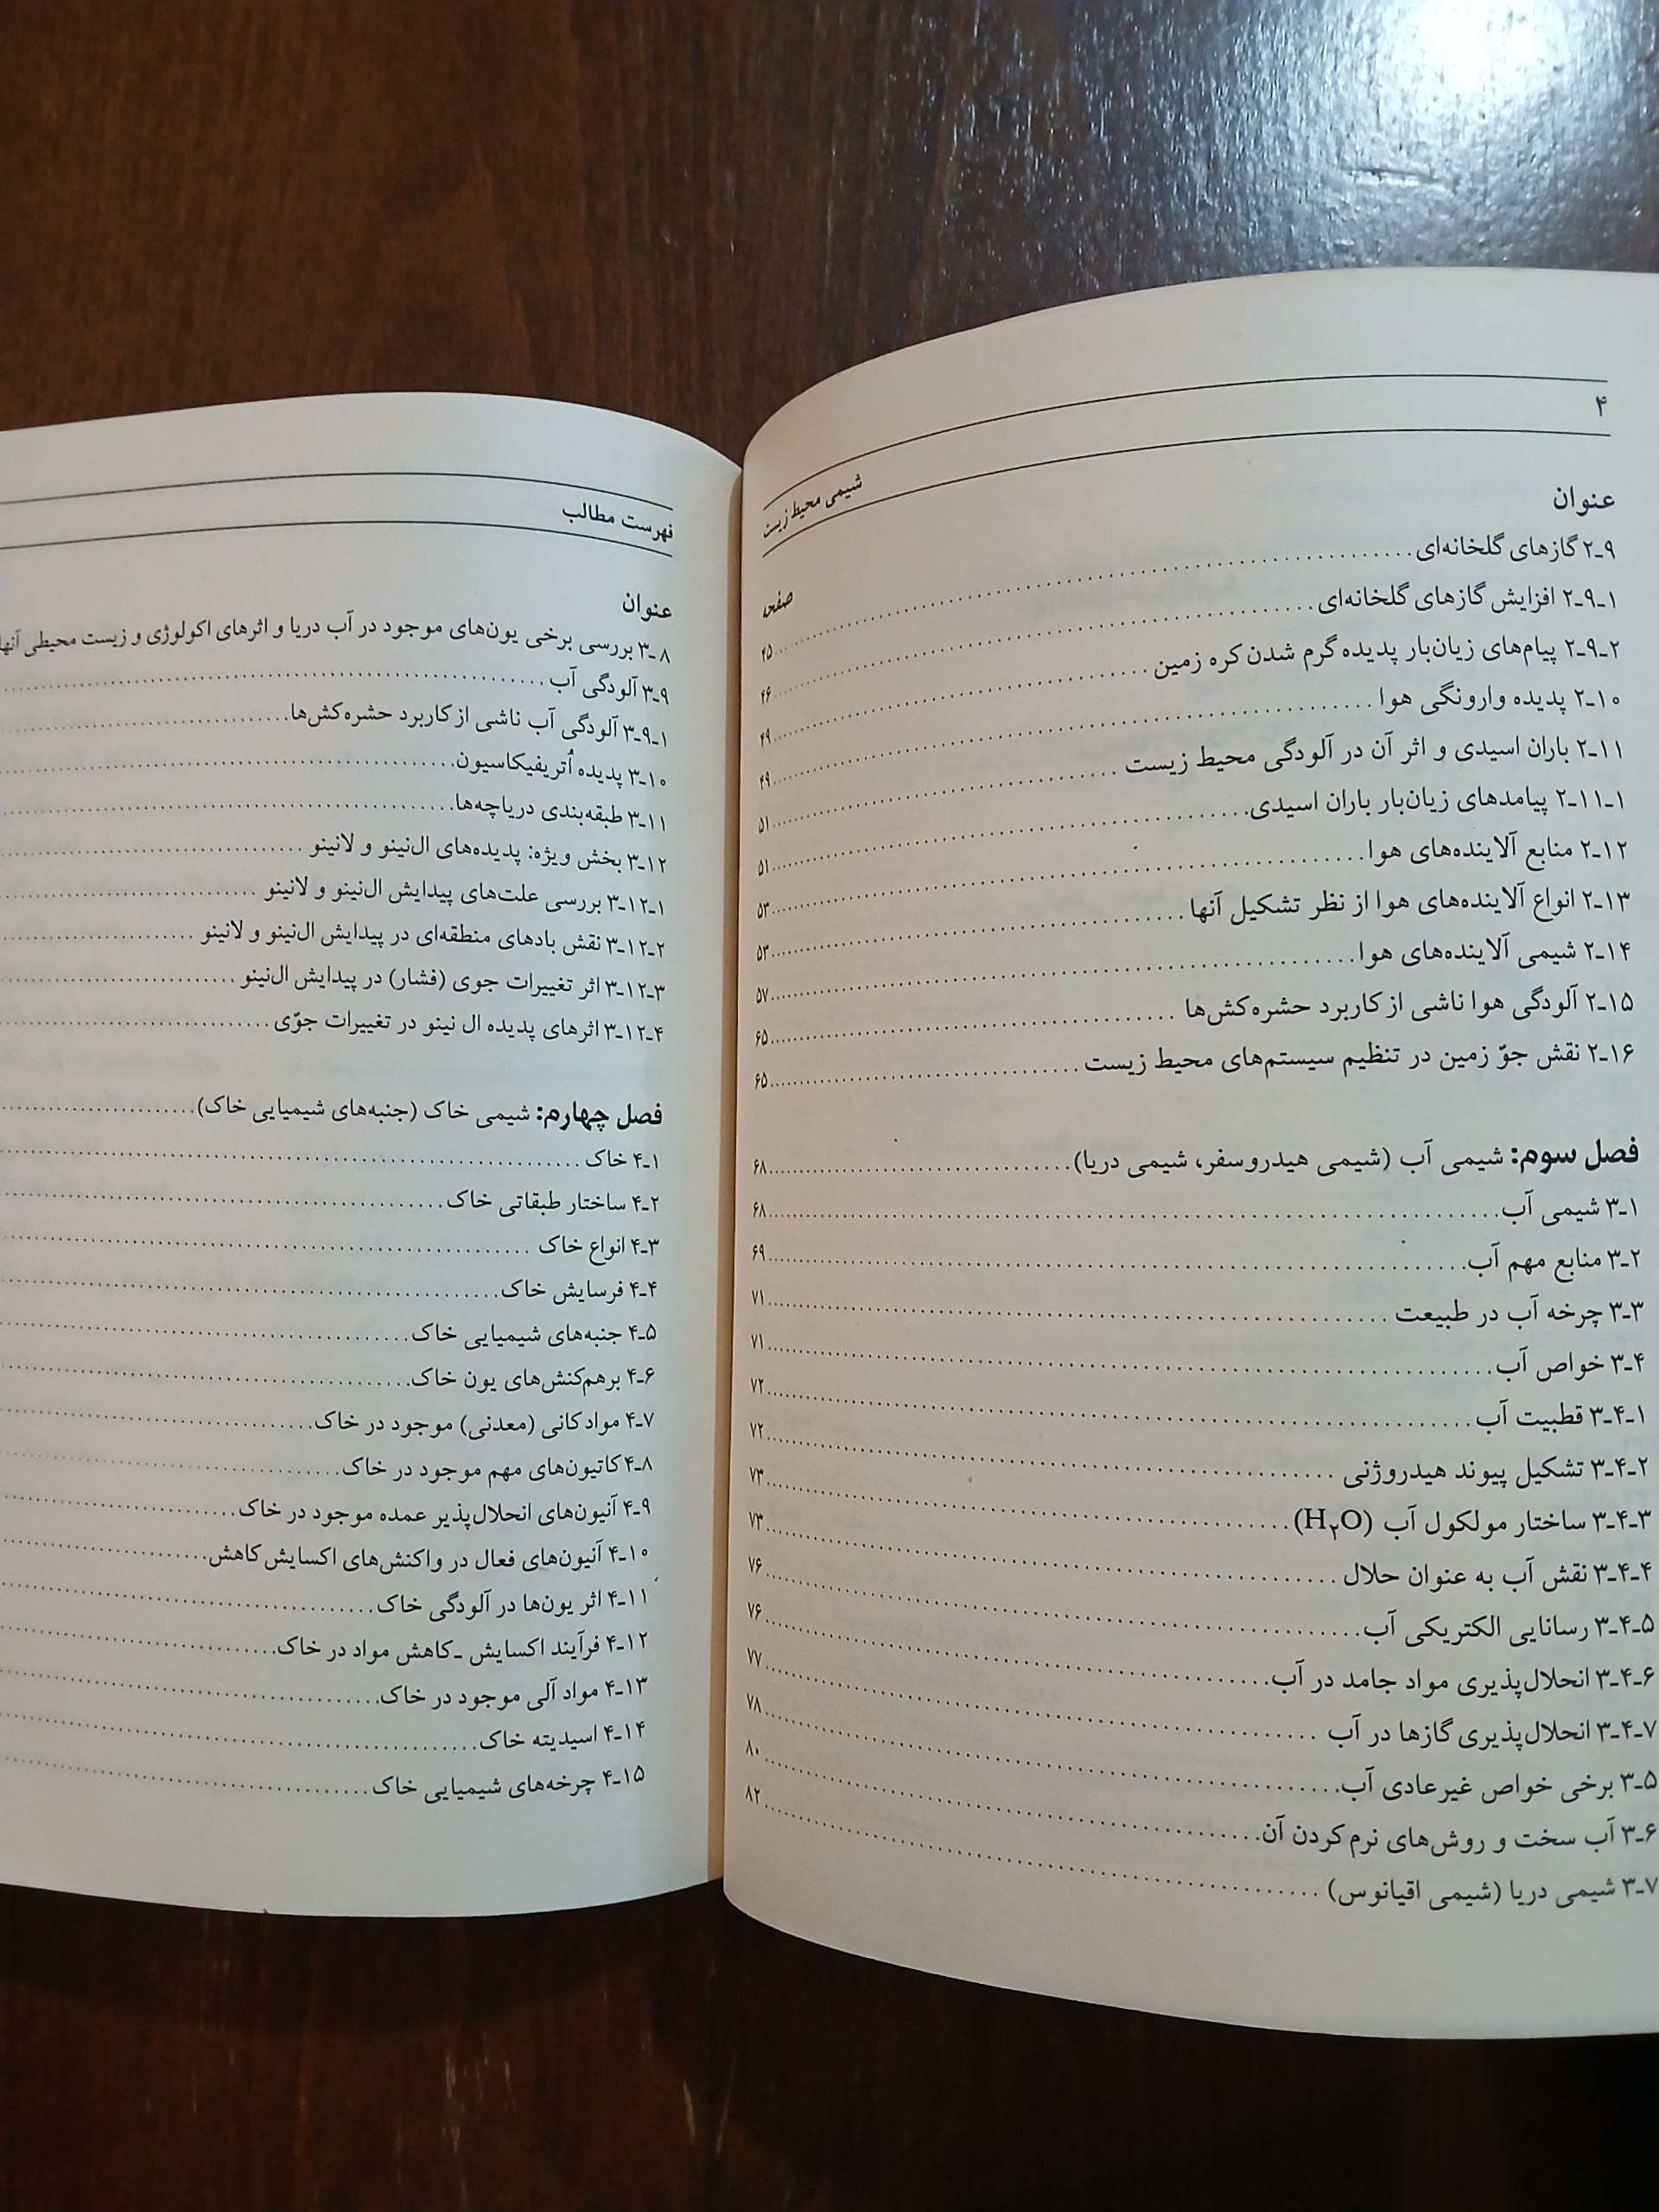 ۴
شیمی محیط زیست
عنوان
صفحه
۲ـ۹ گازهای گلخانه‌ای ۴۵
۲ـ۹ـ۱ افزایش گازهای گلخانه‌ای ۴۶
۲ـ۹ـ۲ پیام‌های زیان‌بار پدیده گرم شدن کره زمین ۴۹
۲ـ۱۰ پدیده وارونگی هوا ۴۹
۲ـ۱۱ باران اسیدی و اثر آن در آلودگی محیط زیست ۵۱
۲ـ۱۱ـ۱ پیامدهای زیان‌بار باران اسیدی ۵۱
۲ـ۱۲ منابع آلاینده‌های هوا ۵۳
۲ـ۱۳ انواع آلاینده‌های هوا از نظر تشکیل آنها ۵۳
۲ـ۱۴ شیمی آلاینده‌های هوا ۵۷
۲ـ۱۵ آلودگی هوا ناشی از کاربرد حشره‌کش‌ها ۶۵
۲ـ۱۶ نقش جوّ زمین در تنظیم سیستم‌های محیط زیست ۶۵
فصل سوم: شیمی آب (شیمی هیدروسفر، شیمی دریا) ۶۸
۳ـ۱ شیمی آب ۶۸
۳ـ۲ منابع مهم آب ۶۹
۳ـ۳ چرخه آب در طبیعت ۷۱
۳ـ۴ خواص آب ۷۱
۳ـ۴ـ۱ قطبیت آب ۷۲
۳ـ۴ـ۲ تشکیل پیوند هیدروژنی ۷۲
۳ـ۴ـ۳ ساختار مولکول آب (H۲O) ۷۳
۳ـ۴ـ۴ نقش آب به عنوان حلال ۷۳
۳ـ۴ـ۵ رسانایی الکتریکی آب ۷۶
۳ـ۴ـ۶ انحلال‌پذیری مواد جامد در آب ۷۶
۳ـ۴ـ۷ انحلال‌پذیری گازها در آب ۷۷
۳ـ۵ برخی خواص غیرعادی آب ۷۸
۳ـ۶ آب سخت و روش‌های نرم کردن آن ۸۰
۳ـ۷ شیمی دریا (شیمی اقیانوس) ۸۲
فهرست مطالب
عنوان
۳ـ۸ بررسی برخی یون‌های موجود در آب دریا و اثرهای اکولوژی و زیست محیطی آنها
۳ـ۹ آلودگی آب
۳ـ۹ـ۱ آلودگی آب ناشی از کاربرد حشره‌کش‌ها
۳ـ۱۰ پدیده اُتریفیکاسیون
۳ـ۱۱ طبقه‌بندی دریاچه‌ها
۳ـ۱۲ بخش ویژه: پدیده‌های ال‌نینو و لانینو
۳ـ۱۲ـ۱ بررسی علت‌های پیدایش ال‌نینو و لانینو
۳ـ۱۲ـ۲ نقش بادهای منطقه‌ای در پیدایش ال‌نینو و لانینو
۳ـ۱۲ـ۳ اثر تغییرات جوی (فشار) در پیدایش ال‌نینو
۳ـ۱۲ـ۴ اثرهای پدیده ال نینو در تغییرات جوّی
فصل چهارم: شیمی خاک (جنبه‌های شیمیایی خاک)
۴ـ۱ خاک
۴ـ۲ ساختار طبقاتی خاک
۴ـ۳ انواع خاک
۴ـ۴ فرسایش خاک
۴ـ۵ جنبه‌های شیمیایی خاک
۴ـ۶ برهم‌کنش‌های یون خاک
۴ـ۷ مواد کانی (معدنی) موجود در خاک
۴ـ۸ کاتیون‌های مهم موجود در خاک
۴ـ۹ آنیون‌های انحلال‌پذیر عمده موجود در خاک
۴ـ۱۰ آنیون‌های فعال در واکنش‌های اکسایش کاهش
۴ـ۱۱ اثر یون‌ها در آلودگی خاک
۴ـ۱۲ فرآیند اکسایش ـ کاهش مواد در خاک
۴ـ۱۳ مواد آلی موجود در خاک
۴ـ۱۴ اسیدیته خاک
۴ـ۱۵ چرخه‌های شیمیایی خاک